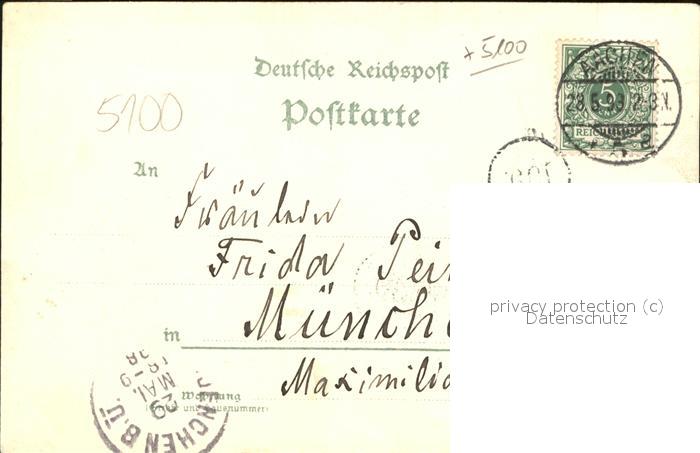 + 5100
Deutsche Reichspost
5100
Postkarte
AACHEN
28.5.98 2-3N.
5
REICH
a
An
Fräulein
Frida Pei
privacy protection (c)
Datenschutz
in Münch
Maximilia
Wohnung
(Straße und Hausnummer)
MÜNCHEN B.Ü.
29
MAI.
8-9
98